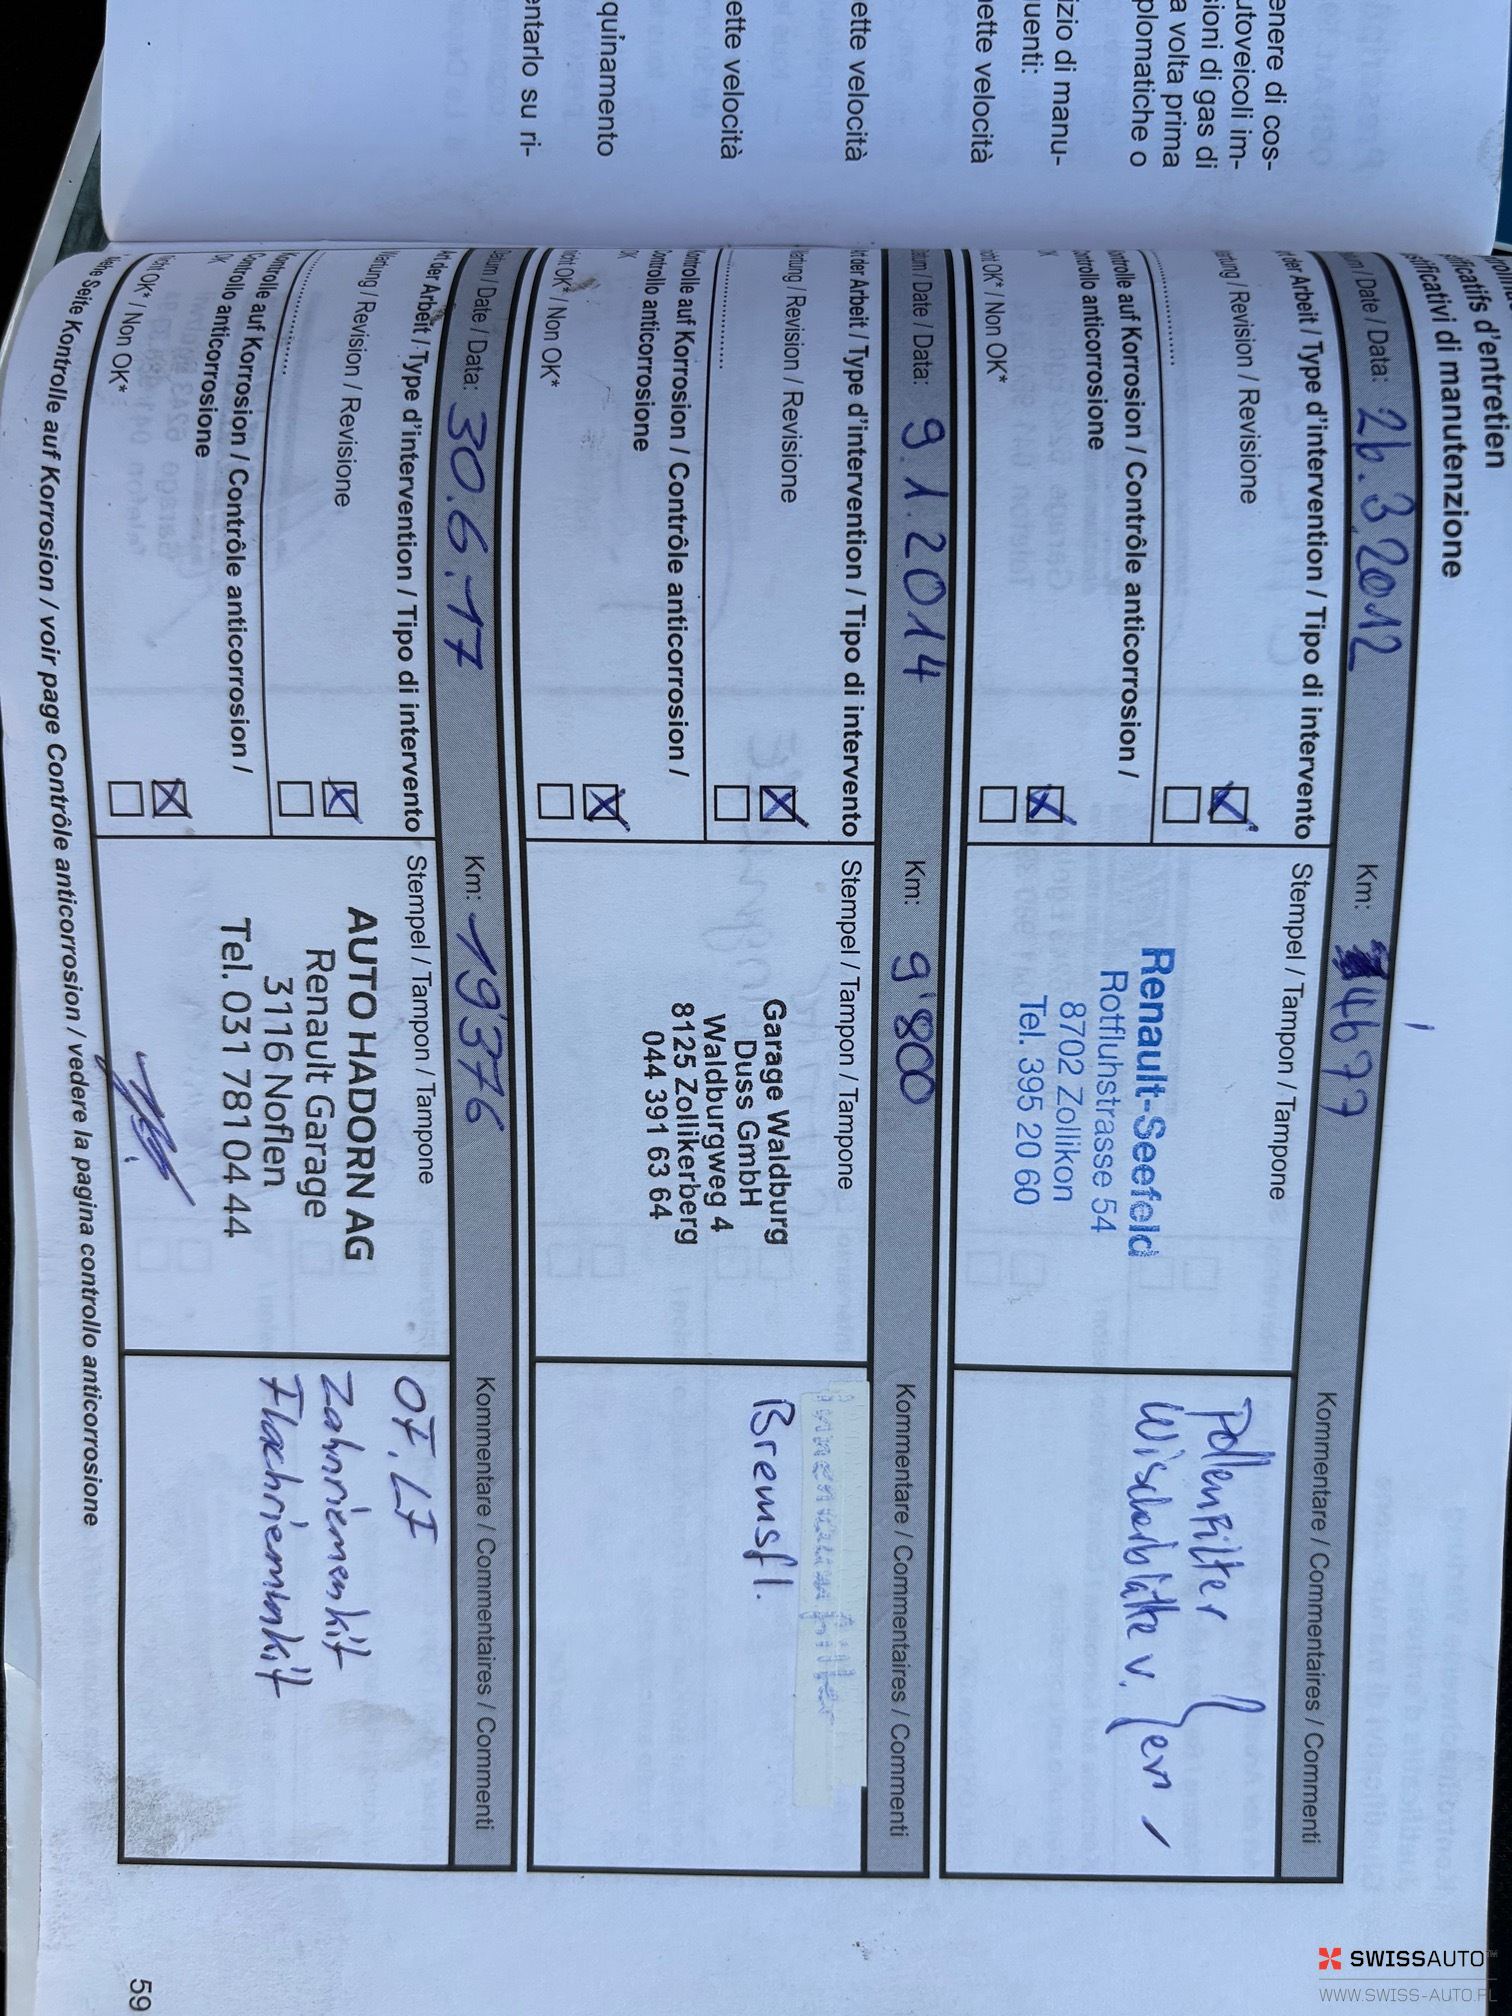 enere di cos-
utoveicoli im-
sioni di gas di
a volta prima
plomatiche o
izio di manu-
uenti:
ette velocità
ette velocità
ette velocità
quinamento
entarlo su ri-
ificatifs d'entretien
stificativi di manutenzione
um / Date / Data: 26.3.2012 Km: 4677 Kommentare / Commentaires / Commenti
t der Arbeit / Type d'intervention / Tipo di intervento
Stempel / Tampon / Tampone
artung / Revision / Revisione
ntrolle auf Korrosion / Contrôle anticorrosion /
ontrollo anticorrosione
ht OK* / Non OK*
Renault-Seefeld
Rotfluhstrasse 54
8702 Zollikon
Tel. 395 20 60
Pollenfilter
Wischerblätter v.
atum / Date / Data: 9.1.2014 Km: 9'800 Kommentare / Commentaires / Commenti
rt der Arbeit / Type d'intervention / Tipo di intervento
Stempel / Tampon / Tampone
Wartung / Revision / Revisione
Kontrolle auf Korrosion / Contrôle anticorrosion /
ontrollo anticorrosione
OK
icht OK* / Non OK*
Garage Waldburg
Duss GmbH
Waldburgweg 4
8125 Zollikerberg
044 391 63 64
Bremsfl.
Datum / Date / Data: 30.6.17 Km: 19'376 Kommentare / Commentaires / Commenti
Art der Arbeit / Type d'intervention / Tipo di intervento
Stempel / Tampon / Tampone
Wartung / Revision / Revisione
Kontrolle auf Korrosion / Contrôle anticorrosion /
Controllo anticorrosione
OK
Nicht OK* / Non OK*
AUTO HADORN AG
Renault Garage
3116 Noflen
Tel. 031 781 04 44
OF, LF
Zahnriemenkit
Flachriemenkit
Siehe Seite Kontrolle auf Korrosion / voir page Contrôle anticorrosion / vedere la pagina controllo anticorrosione
59
SWISSAUTO™
WWW.SWISS-AUTO.PL